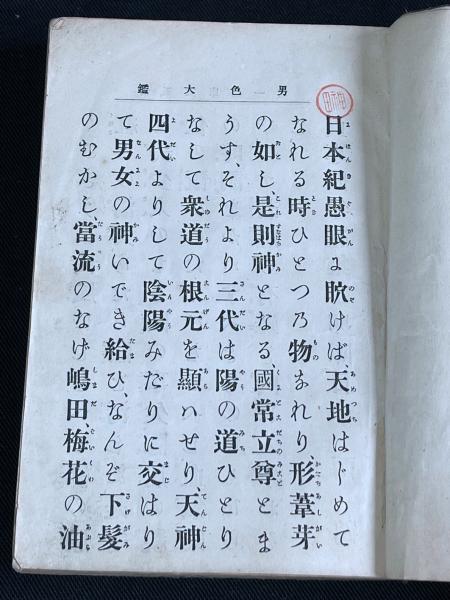 男色大鑑
日本紀愚眼に眈けば、天地はじめて
なれる時ひとつの物なれり、形葦芽
の如し、是則神となる國常立尊とま
うす、それより三代は陽の道ひとり
なして衆道の根元を顯ハせり、天神
四代よりして陰陽みだりに交はり
て男女の神いでき給ひ、なんぞ下髮
のむかし、當流のなげ嶋田、梅花の油